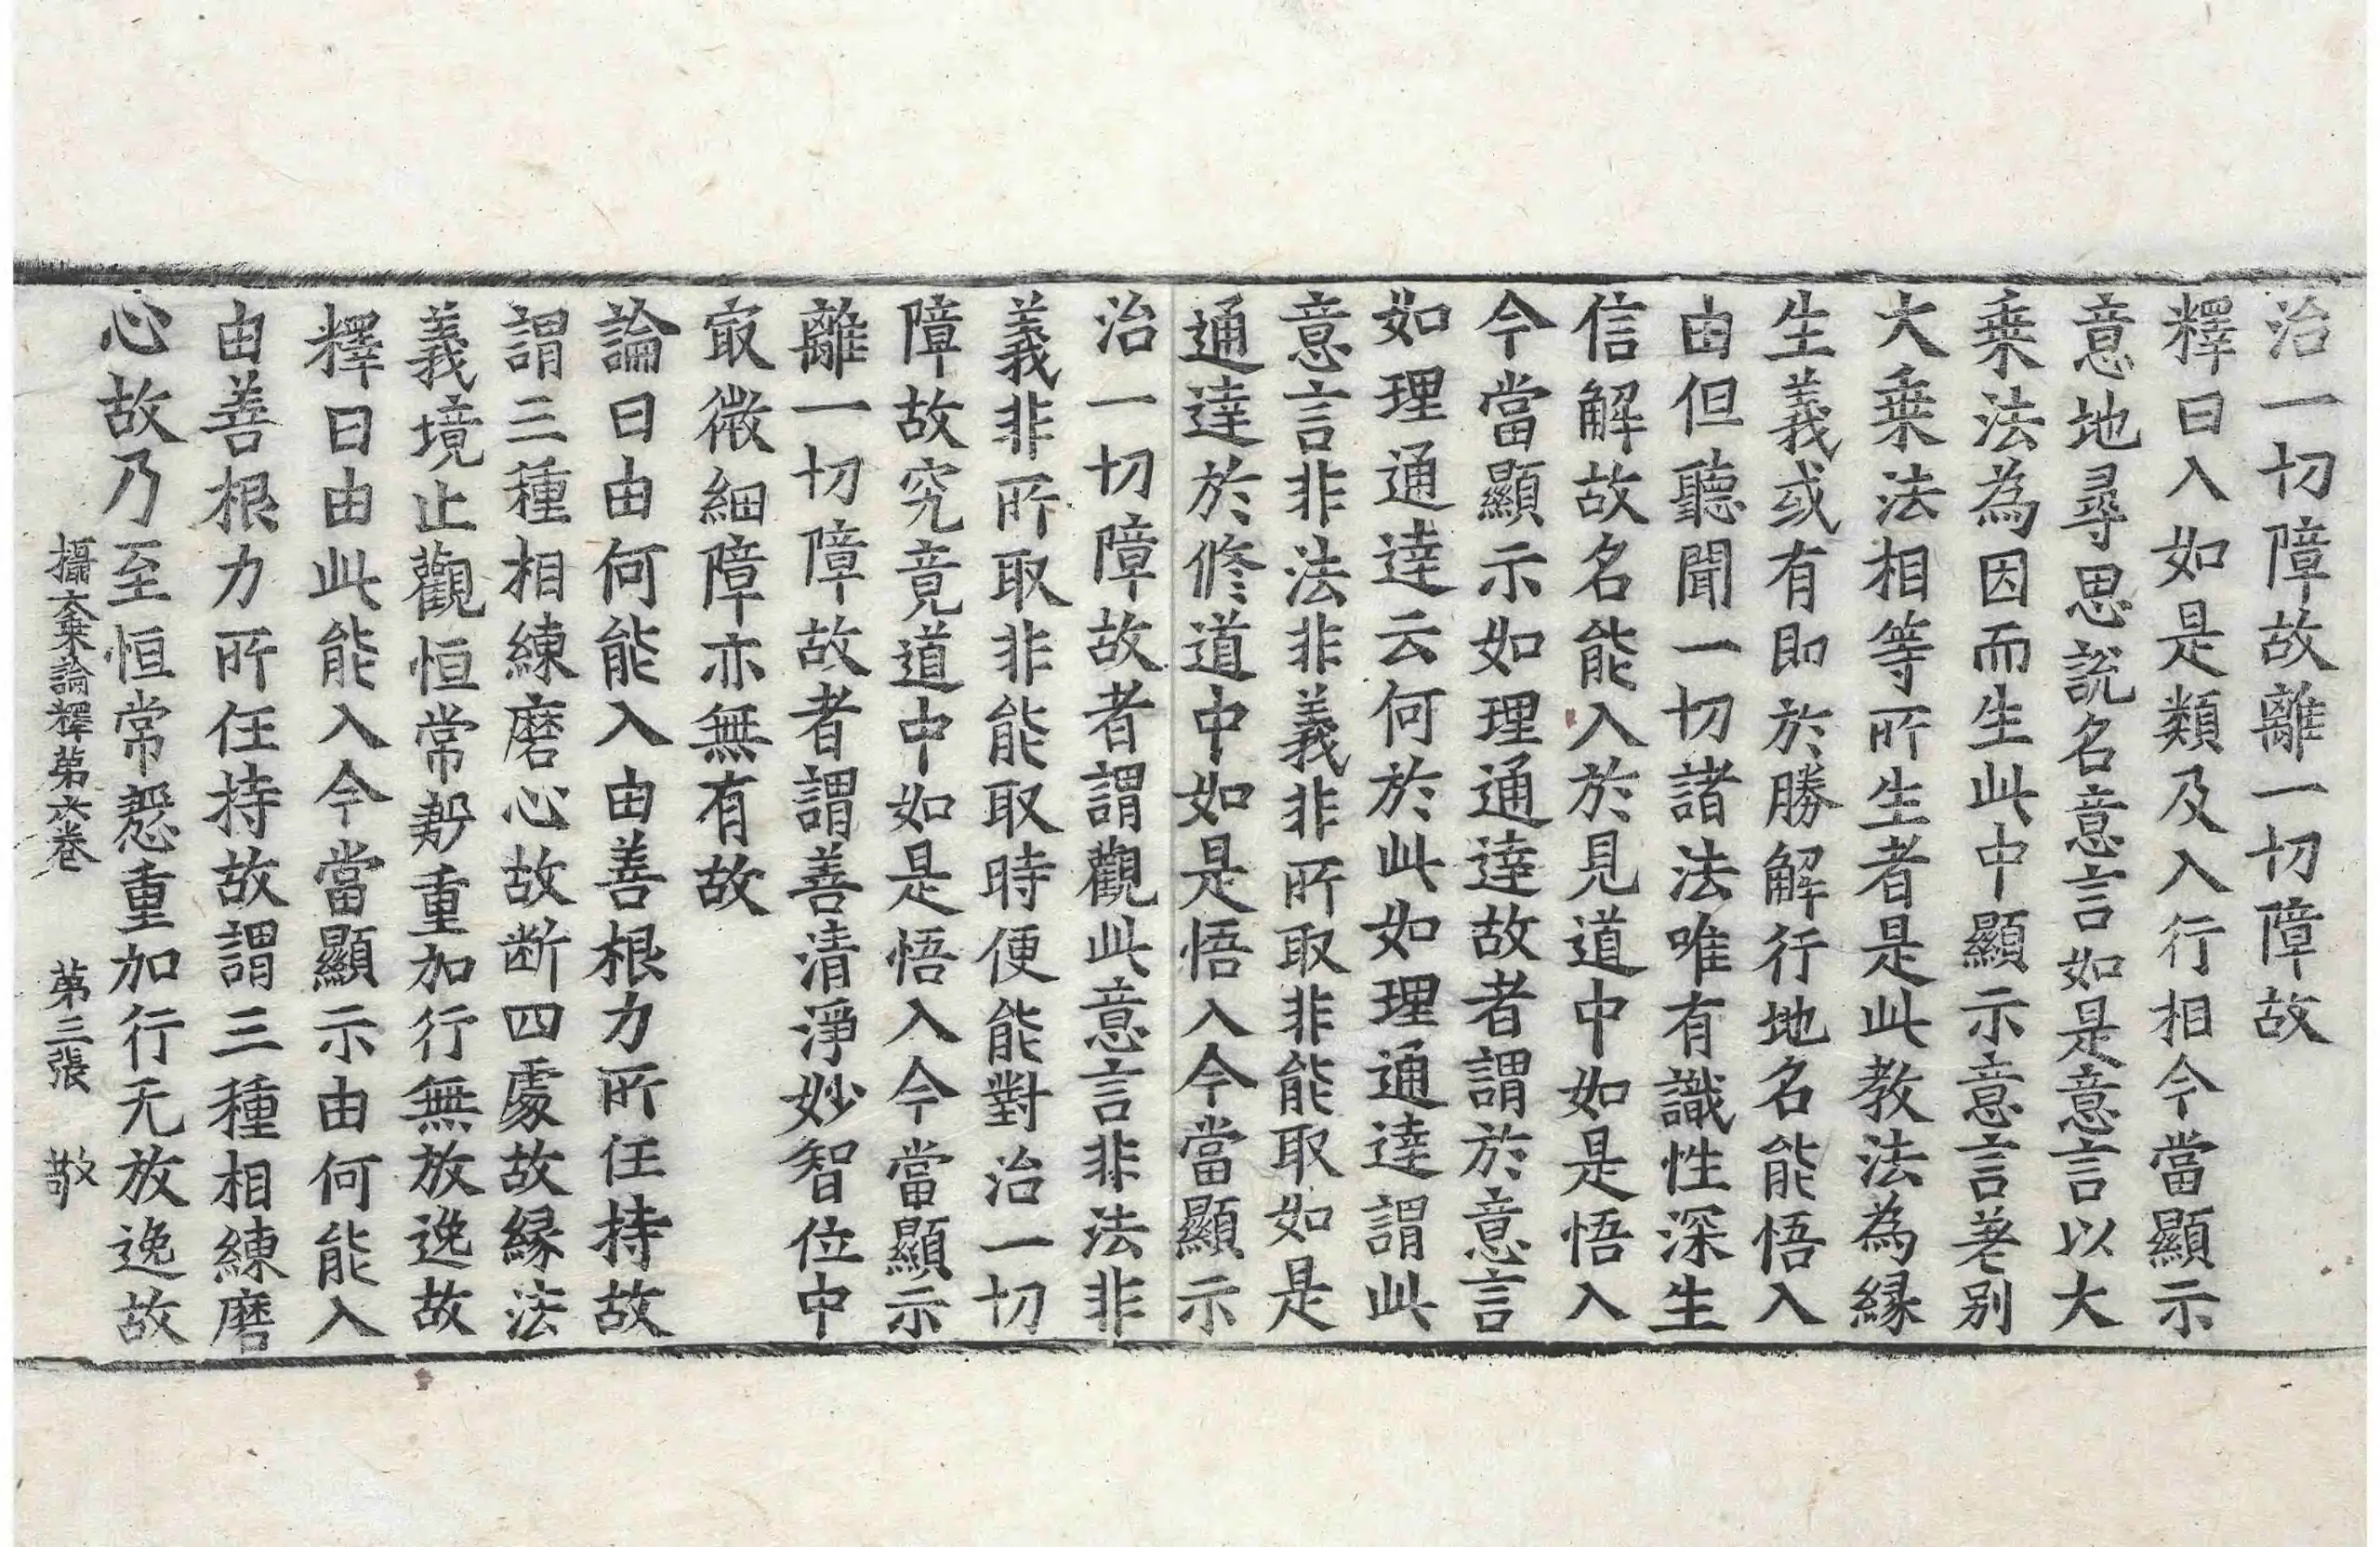 治一切障故離一切障故
釋曰入如是類及入行相今當顯示
意地尋思說名意言如是意言以大
乗法為因而生此中顯示意言差别
大乗法相等所生者是此教法為縁
生義或有即於勝解行地名能悟入
由但聽聞一切諸法唯有識性深生
信解故名能入於見道中如是悟入
今當顯示如理通達故者謂於意言
如理通達云何於此如理通達謂此
意言非法非義非所取非能取如是
通達於修道中如是悟入今當顯示
治一切障故者謂觀此意言非法非
義非所取非能取時便能對治一切
障故究竟道中如是悟入今當顯示
離一切障故者謂善清淨妙智位中
㝡微細障亦無有故
論曰由何能入由善根力所任持故
謂三種相練磨心故断四處故縁法
義境止觀恒常慇重加行無放逸故
釋曰由此能入今當顯示由何能入
由善根力所任持故謂三種相練磨
心故乃至恒常慇重加行无放逸故
攝大乗論釋第六卷 第三張 敬